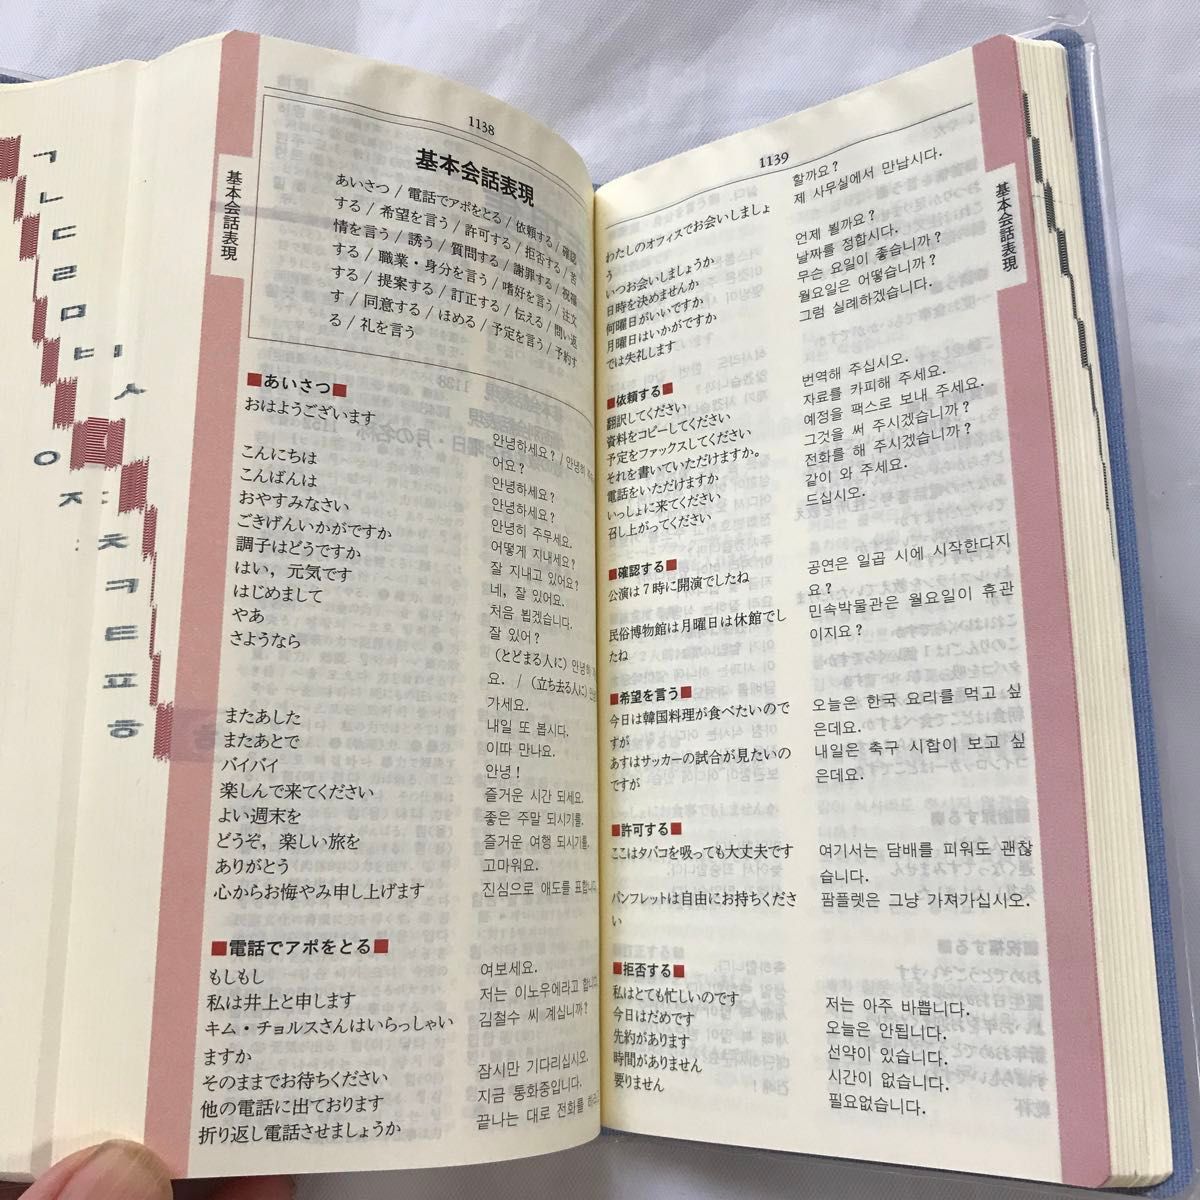 1138
基本会話表現
あいさつ / 電話でアポをとる / 依頼する / 確認
する / 希望を言う / 許可する / 拒否する / 苦
情を言う / 誘う / 質問する / 謝罪する / 祝福
する / 職業・身分を言う / 嗜好を言う / 注文
する / 提案する / 訂正する / 伝える / 問い返
す / 同意する / ほめる / 予定を言う / 予約す
る / 礼を言う
基本会話表現
■あいさつ■
おはようございます
안녕하세요? / 안녕히
어요?
こんにちは 안녕하세요?
こんばんは 안녕하세요?
おやすみなさい 안녕히 주무세요.
ごきげんいかがですか 어떻게 지내세요?
調子はどうですか 잘 지내고 있어요?
はい，元気です 네, 잘 있어요.
はじめまして 처음 뵙겠습니다.
やあ 잘 있어?
さようなら (とどまる人に) 안녕히
요. / (立ち去る人に)
가세요.
またあした 내일 또 봅시다.
またあとで 이따 만나요.
バイバイ 안녕!
楽しんで来てください 즐거운 시간 되세요.
よい週末を 좋은 주말 되시기를.
どうぞ，楽しい旅を 즐거운 여행 되시기를.
ありがとう 고마워요.
心からお悔やみ申し上げます 진심으로 애도를 표합니다.
■電話でアポをとる■
もしもし 여보세요.
私は井上と申します 저는 이노우에라고 합니다.
キム・チョルスさんはいらっしゃい 김철수 씨 계십니까?
ますか
そのままでお待ちください 잠시만 기다리십시오.
他の電話に出ております 지금 통화중입니다.
折り返し電話させましょうか 끝나는 대로 전화를
ㄱ
ㄴ
ㄷ
ㄹ
ㅁ
ㅂ
ㅅ
ㅇ
ㅈ
ㅊ
ㅋ
ㅌ
ㅍ
ㅎ
1139
할까요?
わたしのオフィスでお会いしましょ 제 사무실에서 만납시다.
う
いつお会いしましょうか 언제 뵐까요?
日時を決めませんか 날짜를 정합시다.
何曜日がいいですか 무슨 요일이 좋습니까?
月曜日はいかがですか 월요일은 어떻습니까?
では失礼します 그럼 실례하겠습니다.
基本会話表現
■依頼する■
翻訳してください 번역해 주십시오.
資料をコピーしてください 자료를 카피해 주세요.
予定をファックスしてください 예정을 팩스로 보내 주세요.
それを書いていただけますか。 그것을 써 주시겠습니까?
電話をいただけますか 전화를 해 주시겠습니까?
いっしょに来てください 같이 와 주세요.
召し上がってください 드십시오.
■確認する■
公演は７時に開演でしたね 공연은 일곱 시에 시작한다지
요?
民俗博物館は月曜日は休館でし 민속박물관은 월요일이 휴관
たね 이지요?
■希望を言う■
今日は韓国料理が食べたいので 오늘은 한국 요리를 먹고 싶
すが 은데요.
あすはサッカーの試合が見たいの 내일은 축구 시합이 보고 싶
ですが 은데요.
■許可する■
ここはタバコを吸っても大丈夫です 여기서는 담배를 피워도 괜찮
습니다.
パンフレットは自由にお持ちくださ 팜플렛은 그냥 가져가십시오.
い
■拒否する■
私はとても忙しいのです 저는 아주 바쁩니다.
今日はだめです 오늘은 안됩니다.
先約があります 선약이 있습니다.
時間がありません 시간이 없습니다.
要りません 필요없습니다.